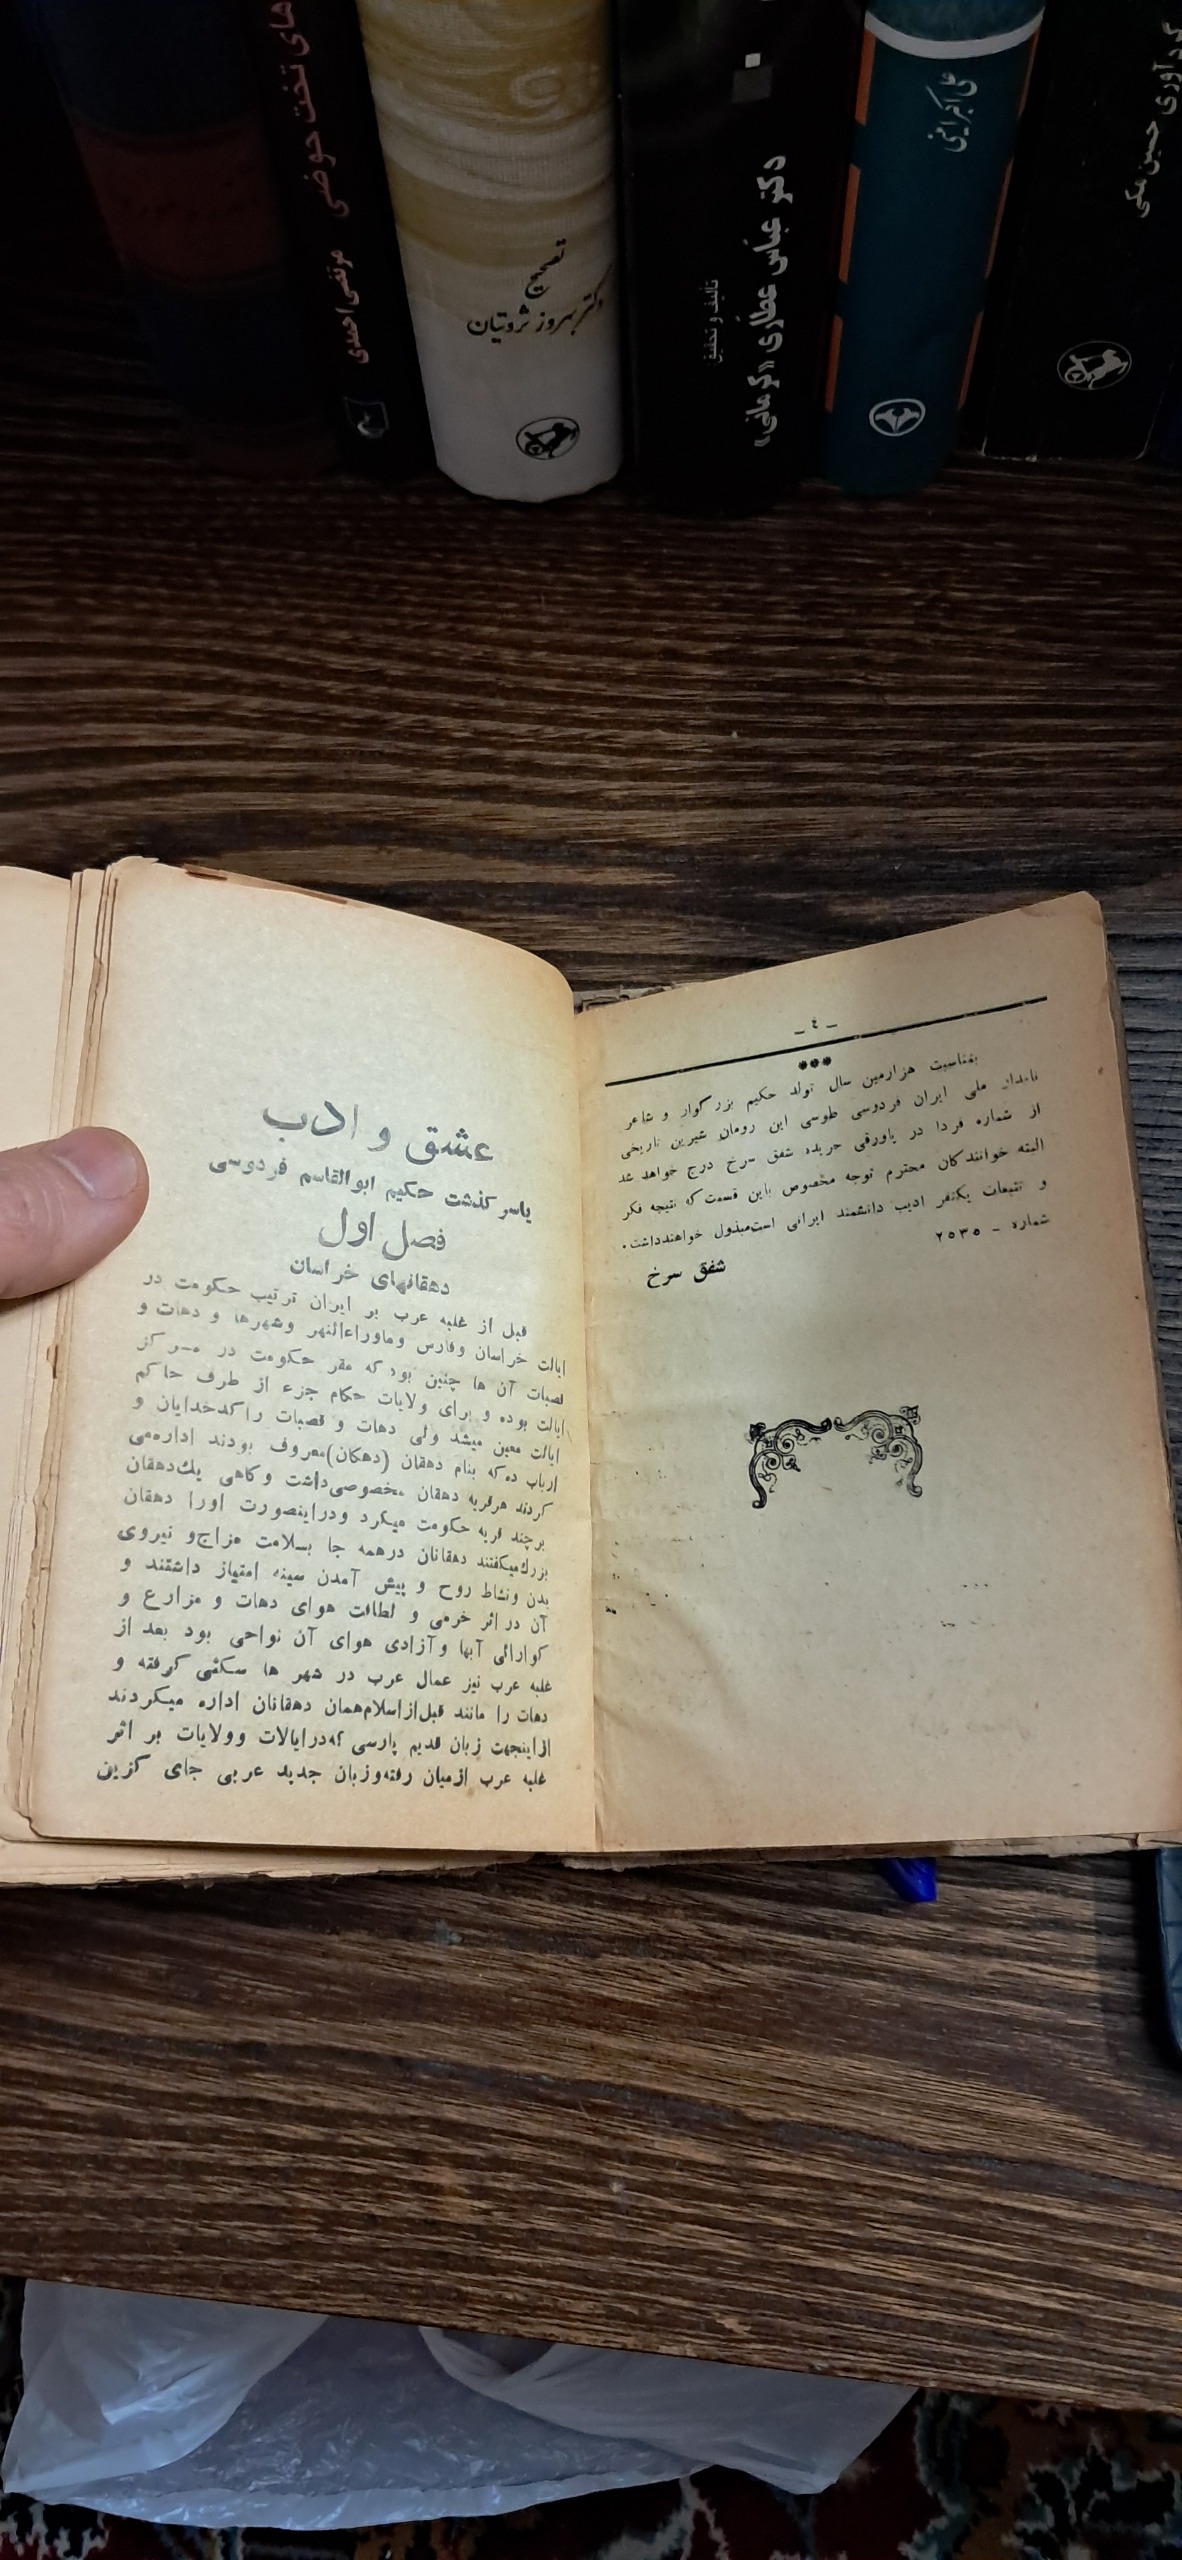 های تخت حوضی
مرتضی احمدی
تصحیح
دکتر بهروز ثروتیان
تألیف و تحقیق
دکتر عباس عطاری «کرمانی»
گردآوری حسین مکی
ـ ٤ ـ
***
بمناسبت هزارمین سال تولد حکیم بزرگوار و شاعر
نامدار ملی ایران فردوسی طوسی این رومان شیرین تاریخی
از شماره فردا در پاورقی جریده شفق سرخ درج خواهد شد
البته خوانندگان محترم توجه مخصوص باین قسمت که نتیجه فکر
و تتبعات یکنفر ادیب دانشمند ایرانی است مبذول خواهند داشت.
شماره ـ ۲۵۳۵
شفق سرخ
عشق و ادب
یاسر گذشت حکیم ابوالقاسم فردوسی
فصل اول
دهقانهای خراسان
قبل از غلبه عرب بر ایران ترتیب حکومت در
ایالت خراسان وفارس وماوراءالنهر وشهرها و دهات و
قصبات آن ها چنین بود که مقر حکومت در مرکز
ایالت بوده و برای ولایات حکام جزء از طرف حاکم
ایالت معین میشد ولی دهات و قصبات را کدخدایان و
ارباب ده که بنام دهقان (دهکان) معروف بودند اداره می
کردند هر قریه دهقان مخصوصی داشت وگاهی یك دهقان
برچند قریه حکومت میکرد ودراینصورت اورا دهقان
بزرك میگفتند دهقانان درهمه جا بسلامت مزاج و نیروی
بدن ونشاط روح و پیش آمدن سینه امتیاز داشتند و
آن در اثر خرمی و لطافت هوای دهات و مزارع و
گوارائی آبها و آزادی هوای آن نواحی بود بعد از
غلبه عرب نیز عمال عرب در شهر ها سکنی گرفته و
دهات را مانند قبل از اسلام همان دهقانان اداره میکردند
ازاینجهت زبان قدیم پارسی که در ایالات وولایات بر اثر
غلبه عرب ازمیان رفته وزبان جدید عربی جای گزین